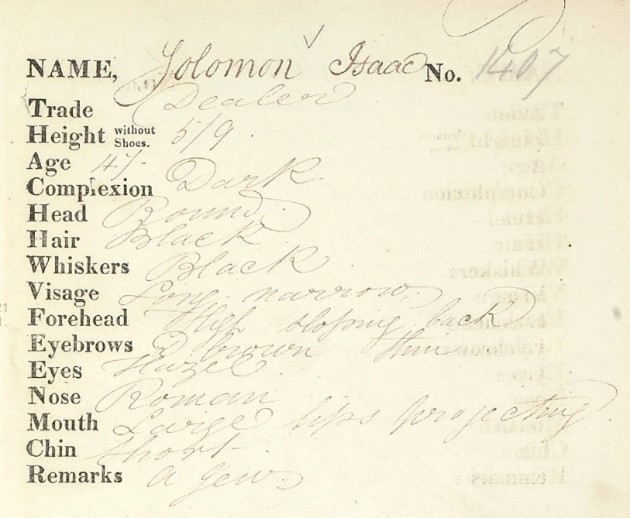 NAME, Solomon Isaac No. 1407
Trade Dealer
Height without Shoes. 5/9
Age 41-
Complexion Dark
Head Round
Hair Black
Whiskers Black
Visage Long narrow
Forehead High sloping back
Eyebrows D brown thin
Eyes Hazel
Nose Roman
Mouth Large lips projecting
Chin Short
Remarks a Jew